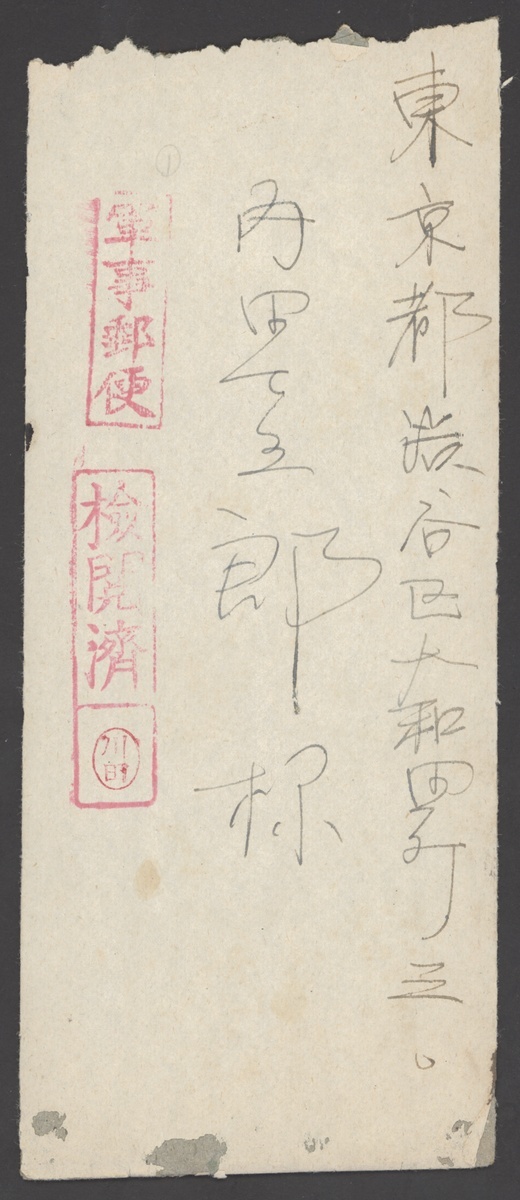 東京都渋谷区大和田町三〇
内田七五郎様
軍事郵便
検閲済